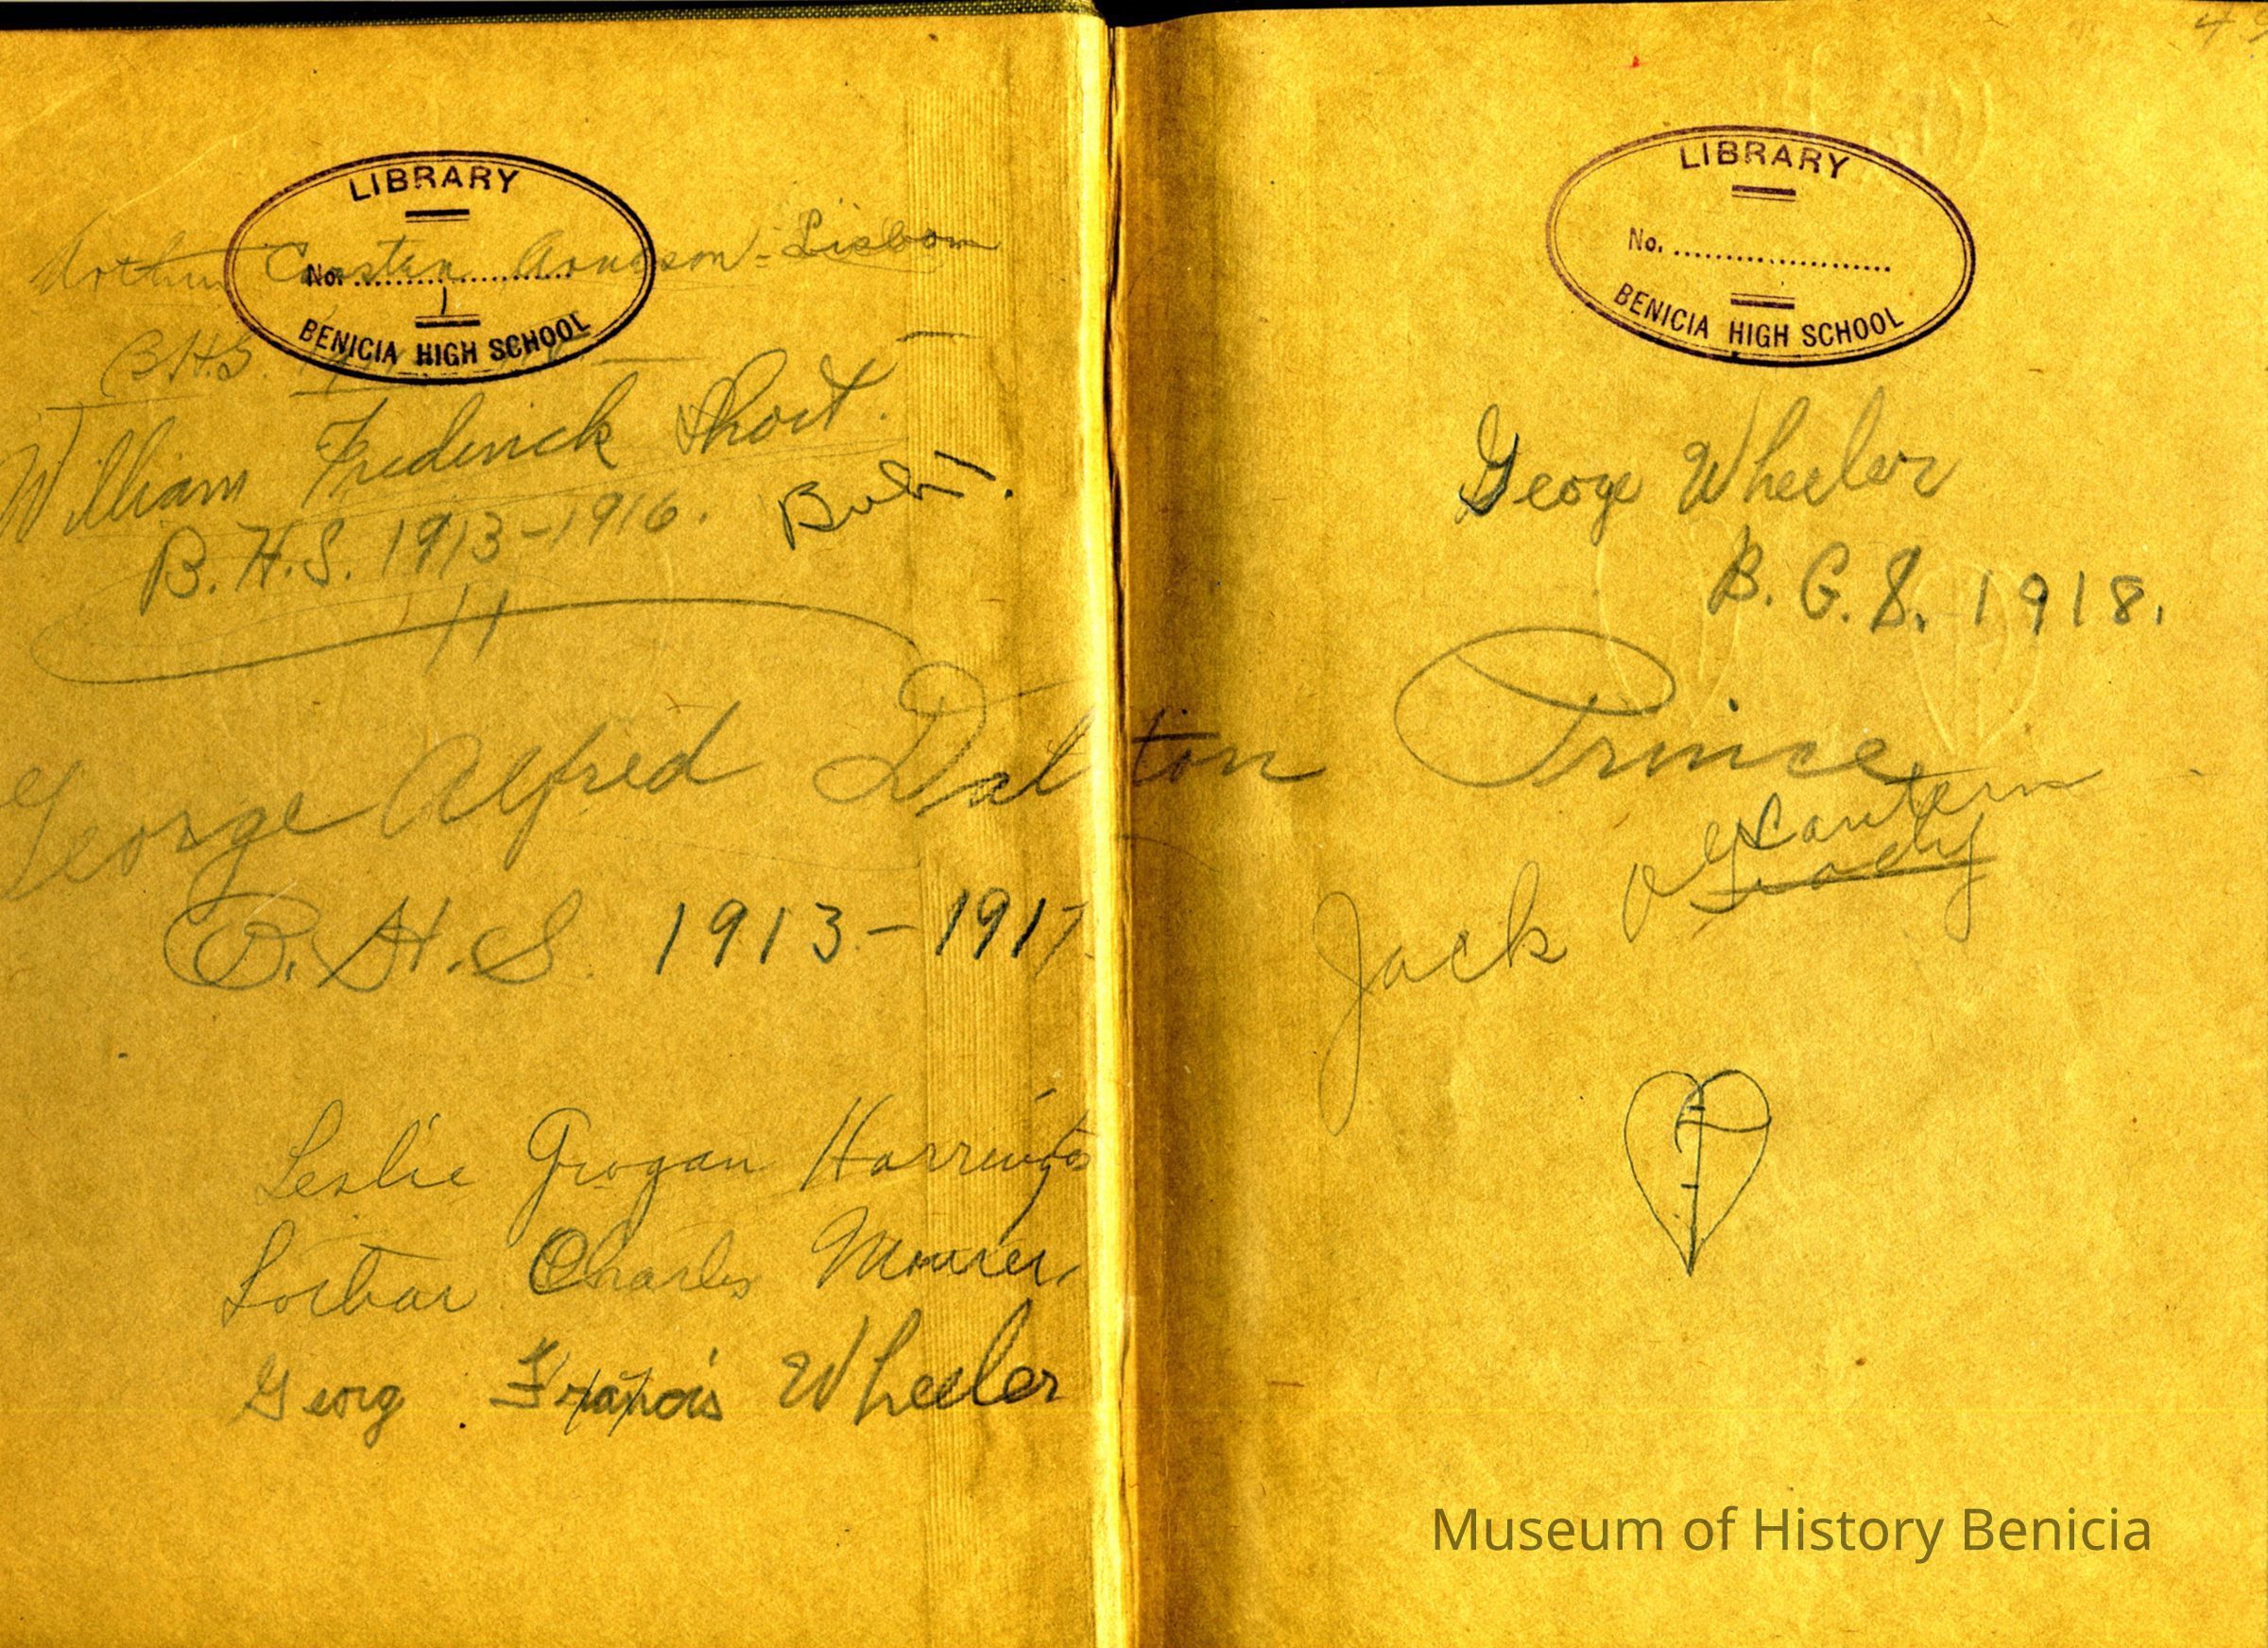 LIBRARY
No.
BENICIA HIGH SCHOOL
Lisbom
B.H.S.
William Frederick Short.
B.H.S. 1913-1916.
George Alfred Dalton Prince
B.H.S. 1913-1917
Leslie Grogan Harrington
Charles Mourer
Georg Francis Wheeler
LIBRARY
No.
BENICIA HIGH SCHOOL
George Wheeler
B.G.S. 1918.
Lantern
Jack O
Museum of History Benicia